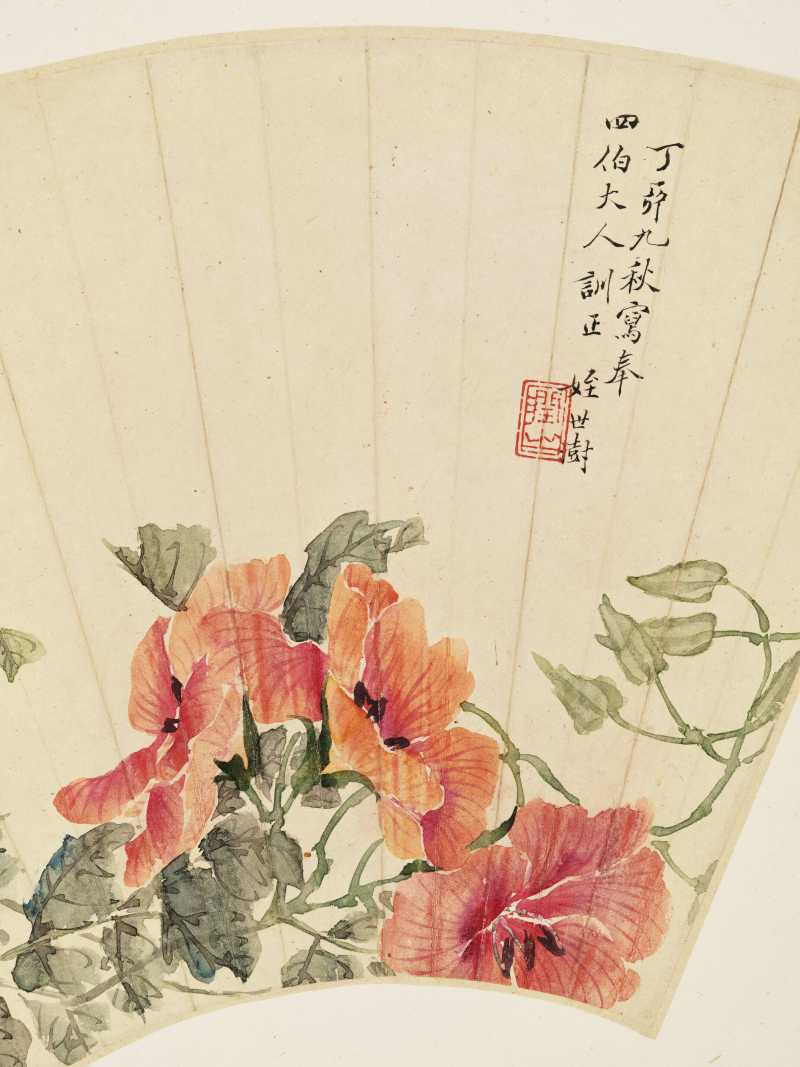 丁卯九秋寫奉
四伯大人訓正
姪世樹